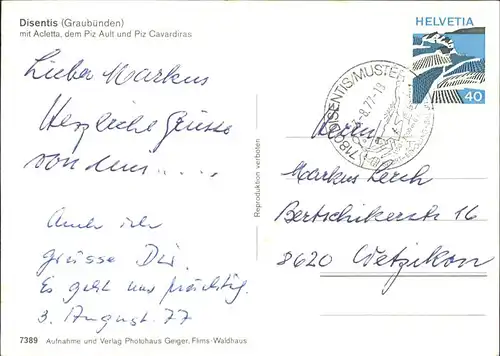 Disentis (Graubünden)
mit Acletta, dem Piz Ault und Piz Cavardiras
HELVETIA
40
7180 DISENTIS/MUSTER
-8.77-18
Lieber Markus
Herzliche Grüsse
von
Auch ich
grüsse Dir.
Es geht uns prächtig.
3. August 77
Reproduktion verboten
Herrn
Markus Lerch
Bertschikerstr 16
8620 Wetzikon
7389 Aufnahme und Verlag Photohaus Geiger, Flims-Waldhaus